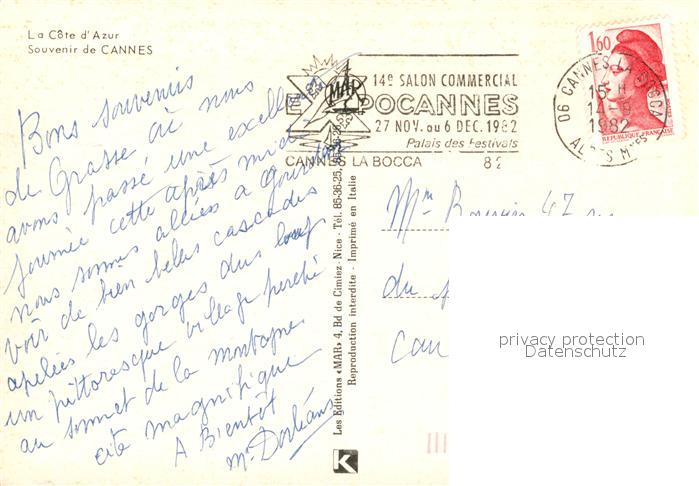 La Côte d'Azur
Souvenir de CANNES
Bons souvenirs
de Grasse où nous
avons passé une excellente
journée cette après midi
nous sommes allées à gourdon
voir de bien belles cascades
apelées les gorges du loup
un pittoresque village perché
au sommet de la montagne.
cité magnifique
A Bientôt
Mme Dorléans
MAR
14e SALON COMMERCIAL
EXPOCANNES
27 NOV. au 6 DEC. 1982
Palais des Festivals
CANNES LA BOCCA 82
06 CANNES-LA-BOCCA
15 H
14 - 9
1982
ALPES Mmes
1,60
REPUBLIQUE FRANÇAISE
Les Editions «MAR» 4, Bd de Cimiez - Nice - Tél. 85-36-25
Reproduction interdite - Imprimé en Italie
Mme 47
du
Can
K
privacy protection
Datenschutz